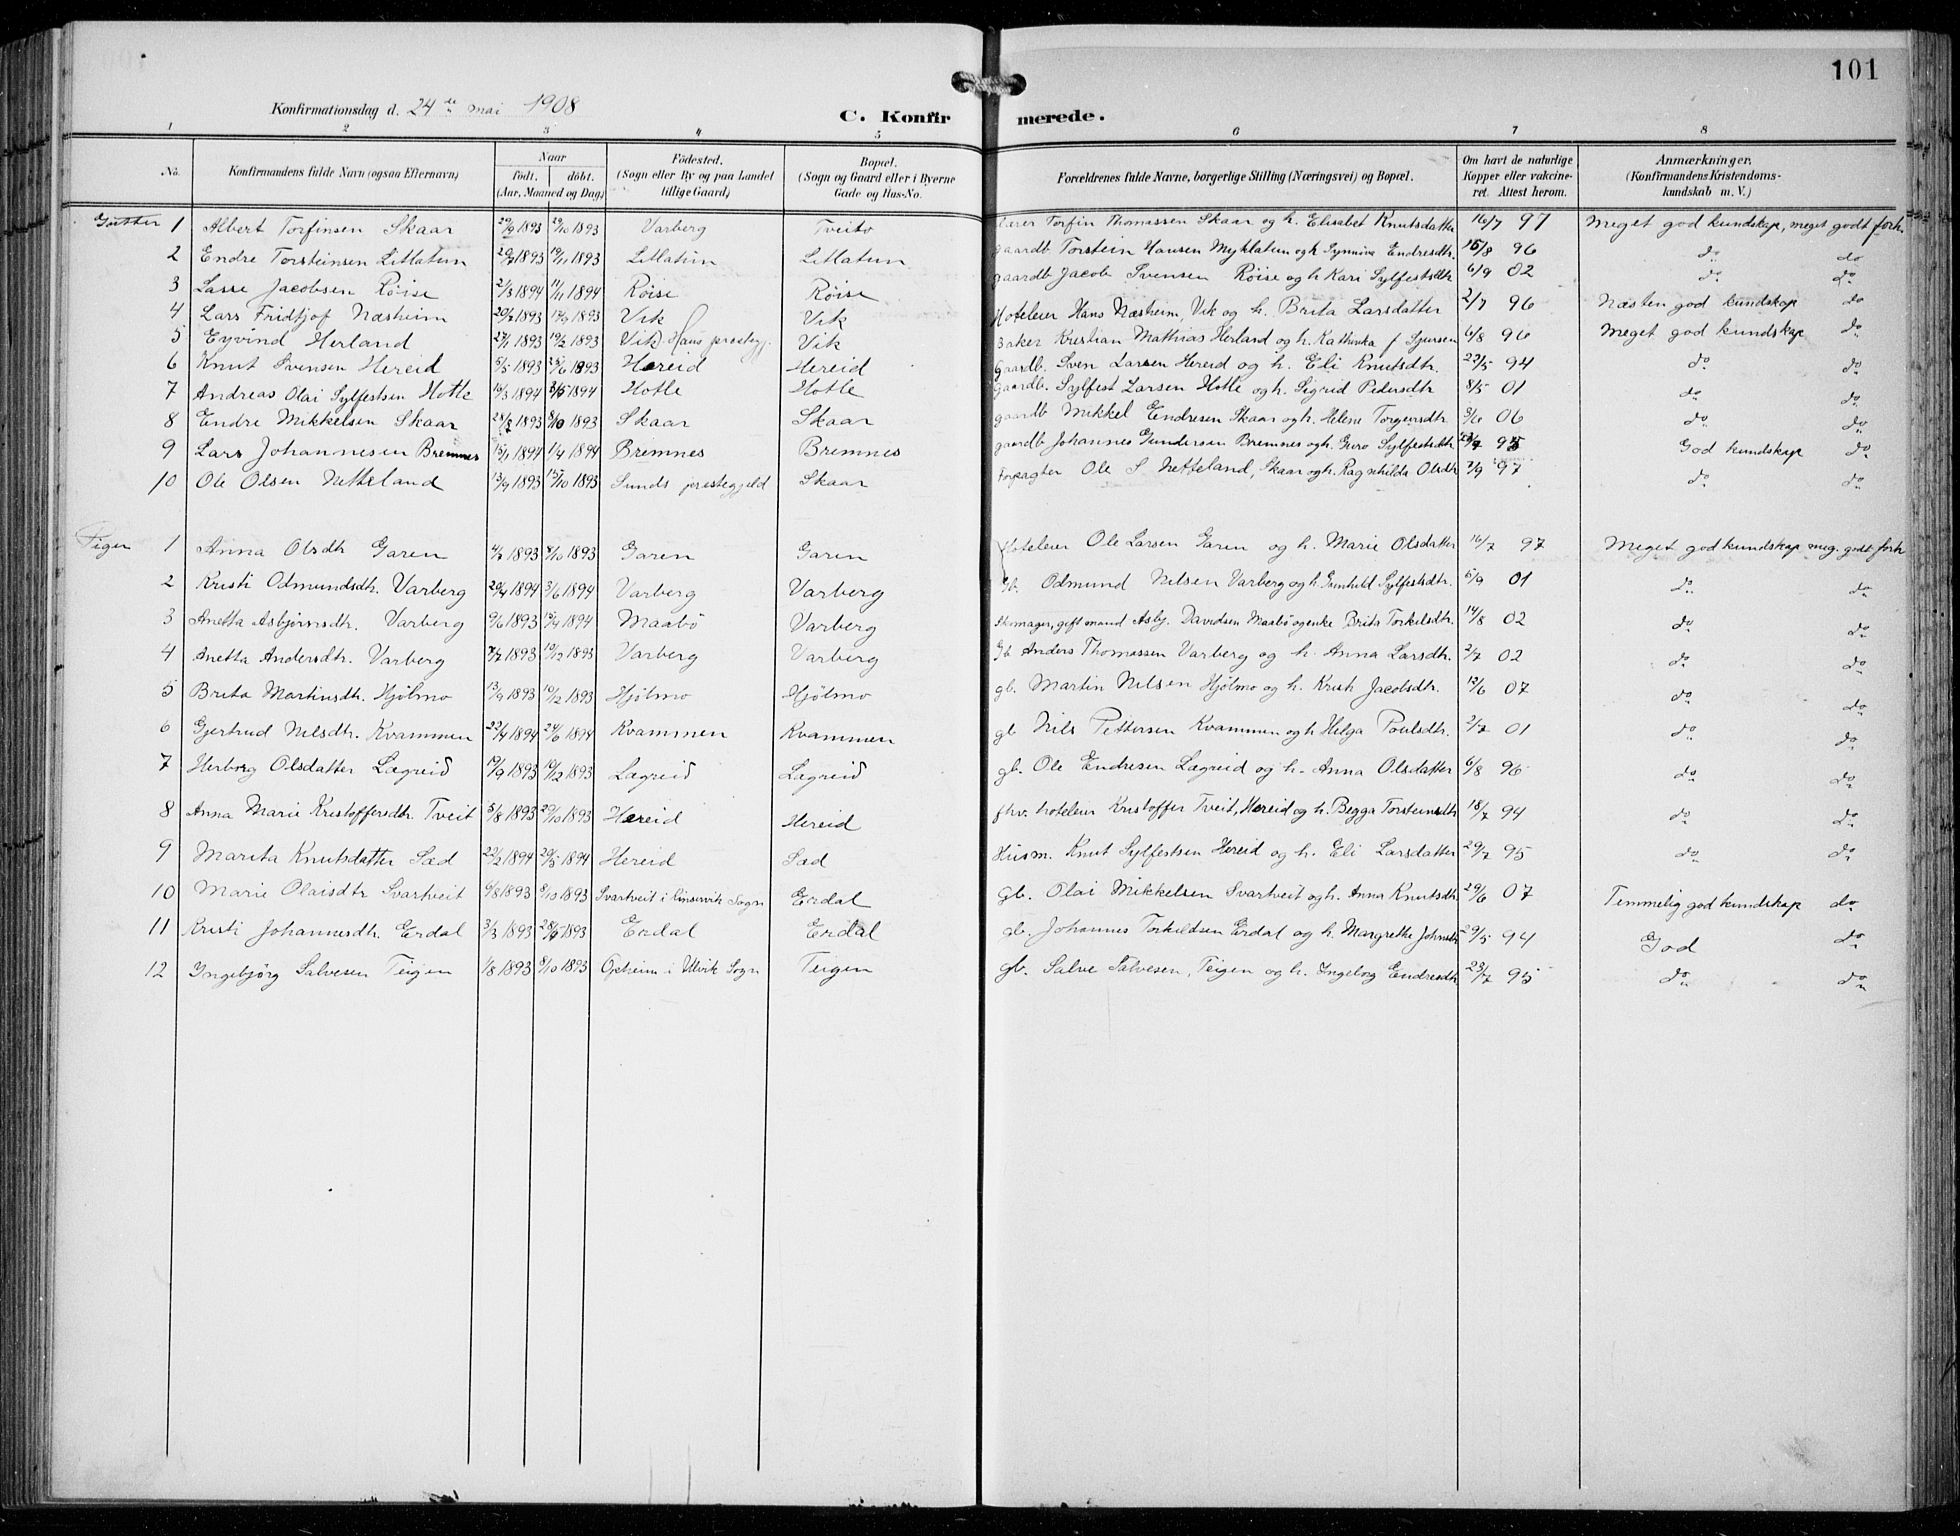 101
Konfirmationsdag d. 24de mai 1908
C. Konfirmerede.
1 2 3 4 5 6 7 8
No. Konfirmandens fulde Navn (ogsaa Efternavn) Naar født. døbt. (Aar, Maaned og Dag) Fødested. (Sogn eller By og paa Landet tillige Gaard) Bopæl. (Sogn og Gaard eller i Byerne Gade og Hus-No. Forældrenes fulde Navne, borgerlige Stilling (Næringsvei) og Bopæl. Om havt de naturlige Kopper eller vakcineret. Attest herom. Anmærkninger. (Konfirmandens Kristendomskundskab m. V.)
Gutter 1 Albert Torfinsen Skaar 29/9 1893 29/10 1893 Varberg Tveito Lærer Torfin Thomassen Skaar og h. Elisabet Knutsdatter 16/7 97 Meget god kundskap, meget godt forh.
2 Endre Torsteinsen Litlatun 1893 19/11 1893 Litlatun Litlatun gaardb. Torstein Hansen Myklatun og h Synniva Endresdtr. 15/8 96 do do
3 Lasse Jacobsen Røise 2/3 1894 1894 Røise Røise gaardb Jacob Svensen Røise og h Kari Sylfestsdtr 6/9 02 do do
4 Lars Fridtjof Næsheim 20/7 1893 1893 Vik Vik Hoteleier Hans Næsheim, Vik og h. Brita Larsdatter 2/7 96 Næsten god kundskap do
5 Eyvind Herland 1893 19/2 1893 Vik Vik Baker Kristian Mathias Herland og h. Kathinka f Sjursen 6/8 96 Meget god kundskap do
6 Knut Svensen Hereid 5/5 1893 25/6 1893 Hereid Hereid Gaardb. Sven Larsen Hereid og h. Eli Knutsdtr. 22/5 94 do do
7 Andreas Olai Sylfestsen Hotle 16/3 1894 3/5 1894 Hotle Hotle gaardb. Sylfest Larsen Hotle og h. Sigrid Pedersdtr 8/5 01 do do
8 Endre Mikkelsen Skaar 1893 8/10 1893 Skaar Skaar gaardb Mikkel Endresen Skaar og h. Helene Torgersdtr 3/6 06 do do
9 Lars Johannesen Bremnes 15/1 1894 1/4 1894 Bremnes Bremnes gaardb Johannes Gundersen Bremnes og h. Guro Sylfestsdtr 95 God kundskap do
10 Ole Olsen Netteland 13/9 1893 15/10 1893 Sunds prestegjeld Skaar Forpagter Ole S. Netteland, Skaar og h. Ragnhilda Olsdtr 2/9 97 do do
Piger 1 Anna Olsdtr Garen 1893 1893 Garen Garen Hoteleier Ole Larsen Garen og h. Marie Olsdatter 16/7 97 Meget god kundskap meg. godt forh
2 Kristi Odmundsdtr. Varberg 20/4 1894 3/6 1894 Varberg Varberg Gb. Odmund Nilsen Varberg og h. Gunhild Sylfestsdtr. 5/9 01 do do
3 Anetta Asbjørnsdtr. Varberg 9/6 1893 15/4 1894 Maabø Varberg gift mand Asbj. Davidsen Maabø og enke Brita Torkelsdtr. 14/8 02 do do
4 Anetta Andersdtr. Varberg 1893 10/12 1893 Varberg Varberg Gb Anders Thomassen Varberg og h. Anna Larsdtr. 2/7 02 do do
5 Brita Martinsdtr. Hjølmo 13/9 1893 10/12 1893 Hjølmo Hjølmo gb. Martin Nilsen Hjølmo og h. Kristi Jacobsdtr. 12/6 07 do do
6 Gjertrud Nilsdtr. Kvammen 22/4 1894 24/6 1894 Kvammen Kvammen gb Nils Pettersen Kvammen og h Helga Poulsdtr. 2/7 01 do do
7 Herborg Olsdatter Lægreid 19/9 1893 19/12 1893 Lægreid Lægreid gb. Ole Endresen Lægreid og h. Anna Olsdatter 6/8 96 do do
8 Anna Marie Kristoffersdtr. Tveit 5/8 1893 29/10 1893 Hereid Hereid fhv. hoteleier Kristoffer Tveit, Hereid og h. Begga Torsteinsdtr 18/7 94 do do
9 Marita Knutsdatter Sæd 22/2 1894 20/5 1894 Hereid Sæd Husm. Knut Sylfestsen Hereid og h. Eli Larsdatter 29/7 95 do do
10 Marie Olaisdtr Svartveit 6/8 1893 8/10 1893 Svartveit i Kinservik Sogn Erdal Gb. Olai Mikkelsen Svartveit og h. Anna Knutsdtr 29/6 07 Temmelig god kundskap do
11 Kristi Johannesdtr. Erdal 3/3 1893 1893 Erdal Erdal gb. Johannes Torkeldsen Erdal og h. Margrethe Johnsdtr 29/5 94 God do
12 Ingebjørg Salvesen Teigen 1/8 1893 8/10 1893 Opheim i Ulvik Sogn Teigen gb. Salve Salvesen, Teigen og h. Ingeborg Endresdtr 23/7 95 do do